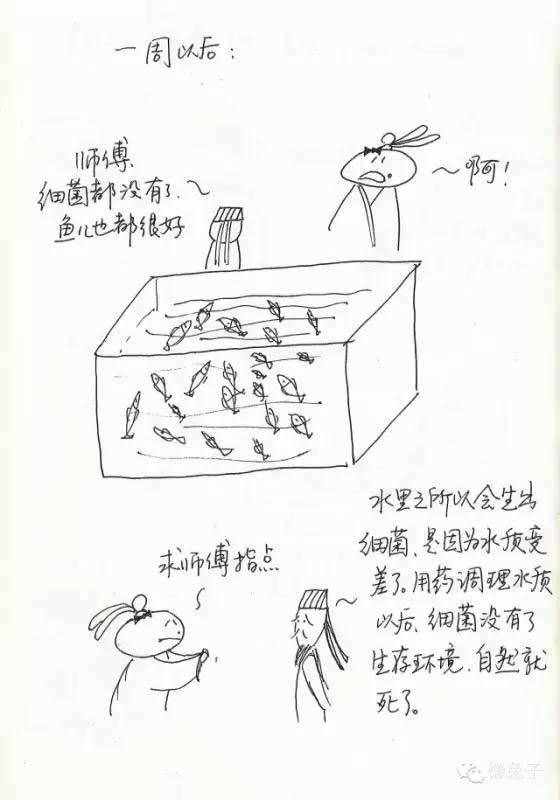 一周以后:
师傅、
细菌都没有了、
鱼儿也都很好
啊!
求师傅指点
水里之所以会生出
细菌、是因为水质变
差了。用药调理水质
以后、细菌没有了
生存环境、自然就
死了。
懒兔子